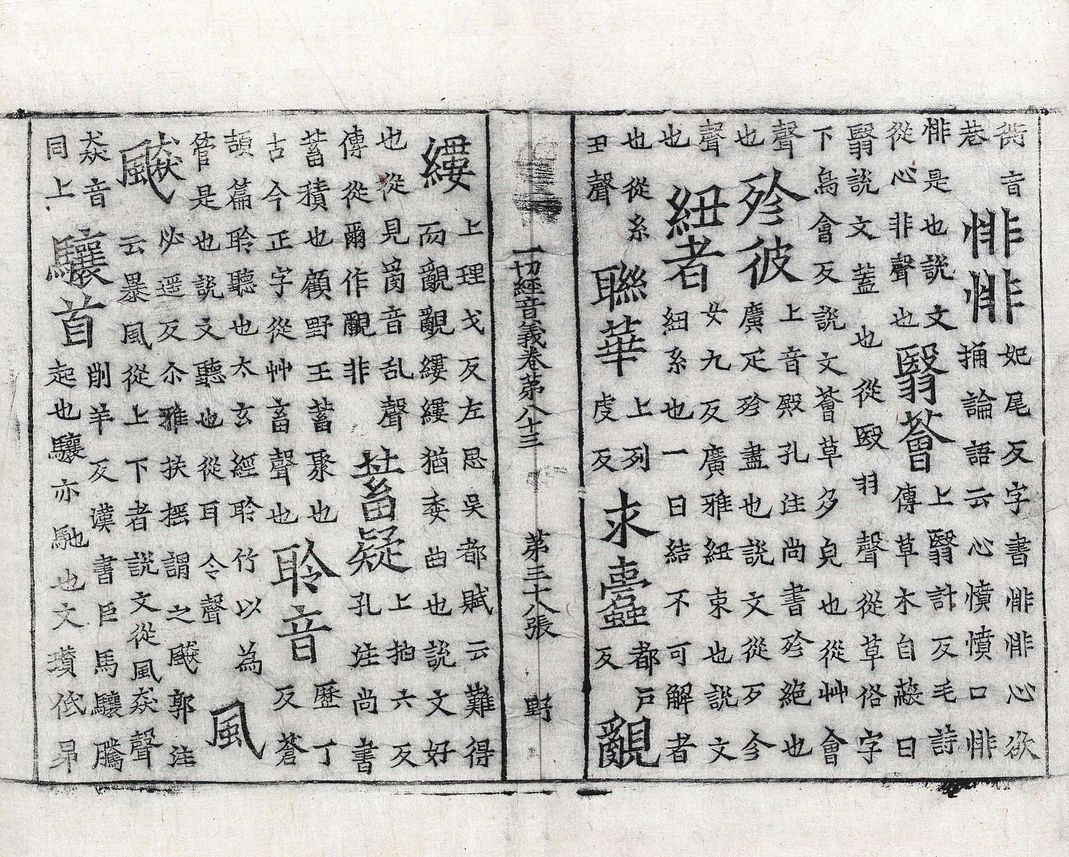 衖音巷悱悱妃尾反字書悱悱心欲捅論語云心憤憤口悱
悱是也說文從心非聲也翳薈上翳計反毛詩傳草木自蔽曰
翳說文蓋也從殹羽聲從草俗字下烏會反說文薈草多皃也從艸會
聲也殄彼上音殿孔注尚書殄絕也廣疋殄盡也說文從歹㐱
聲也紐者女九反廣雅紐束也說文紐系也一曰結不可解者
也從糸丑聲聯華上列虔反求蠹都戶反覼
一切經音義卷第八十三 第三十八張 野
縷上理戈反左思吳都賦云難得而覼覼縷縷猶委曲也說文好
也從見𤔔音乱聲傳從爾作覼非蓄疑上抽六反孔注尚書
蓄積也顧野王蓄聚也古今正字從艸畜聲也聆音歷丁反蒼
頡篇聆聽也太玄經聆竹以為管是也說文聽也從耳令聲風
飇必遥反尒雅扶摇謂之飇郭注云暴風從上下者說文從風猋聲
猋音同上驤首削羊反漢書臣馬驤騰起也驤亦馳也文瓉伭昂